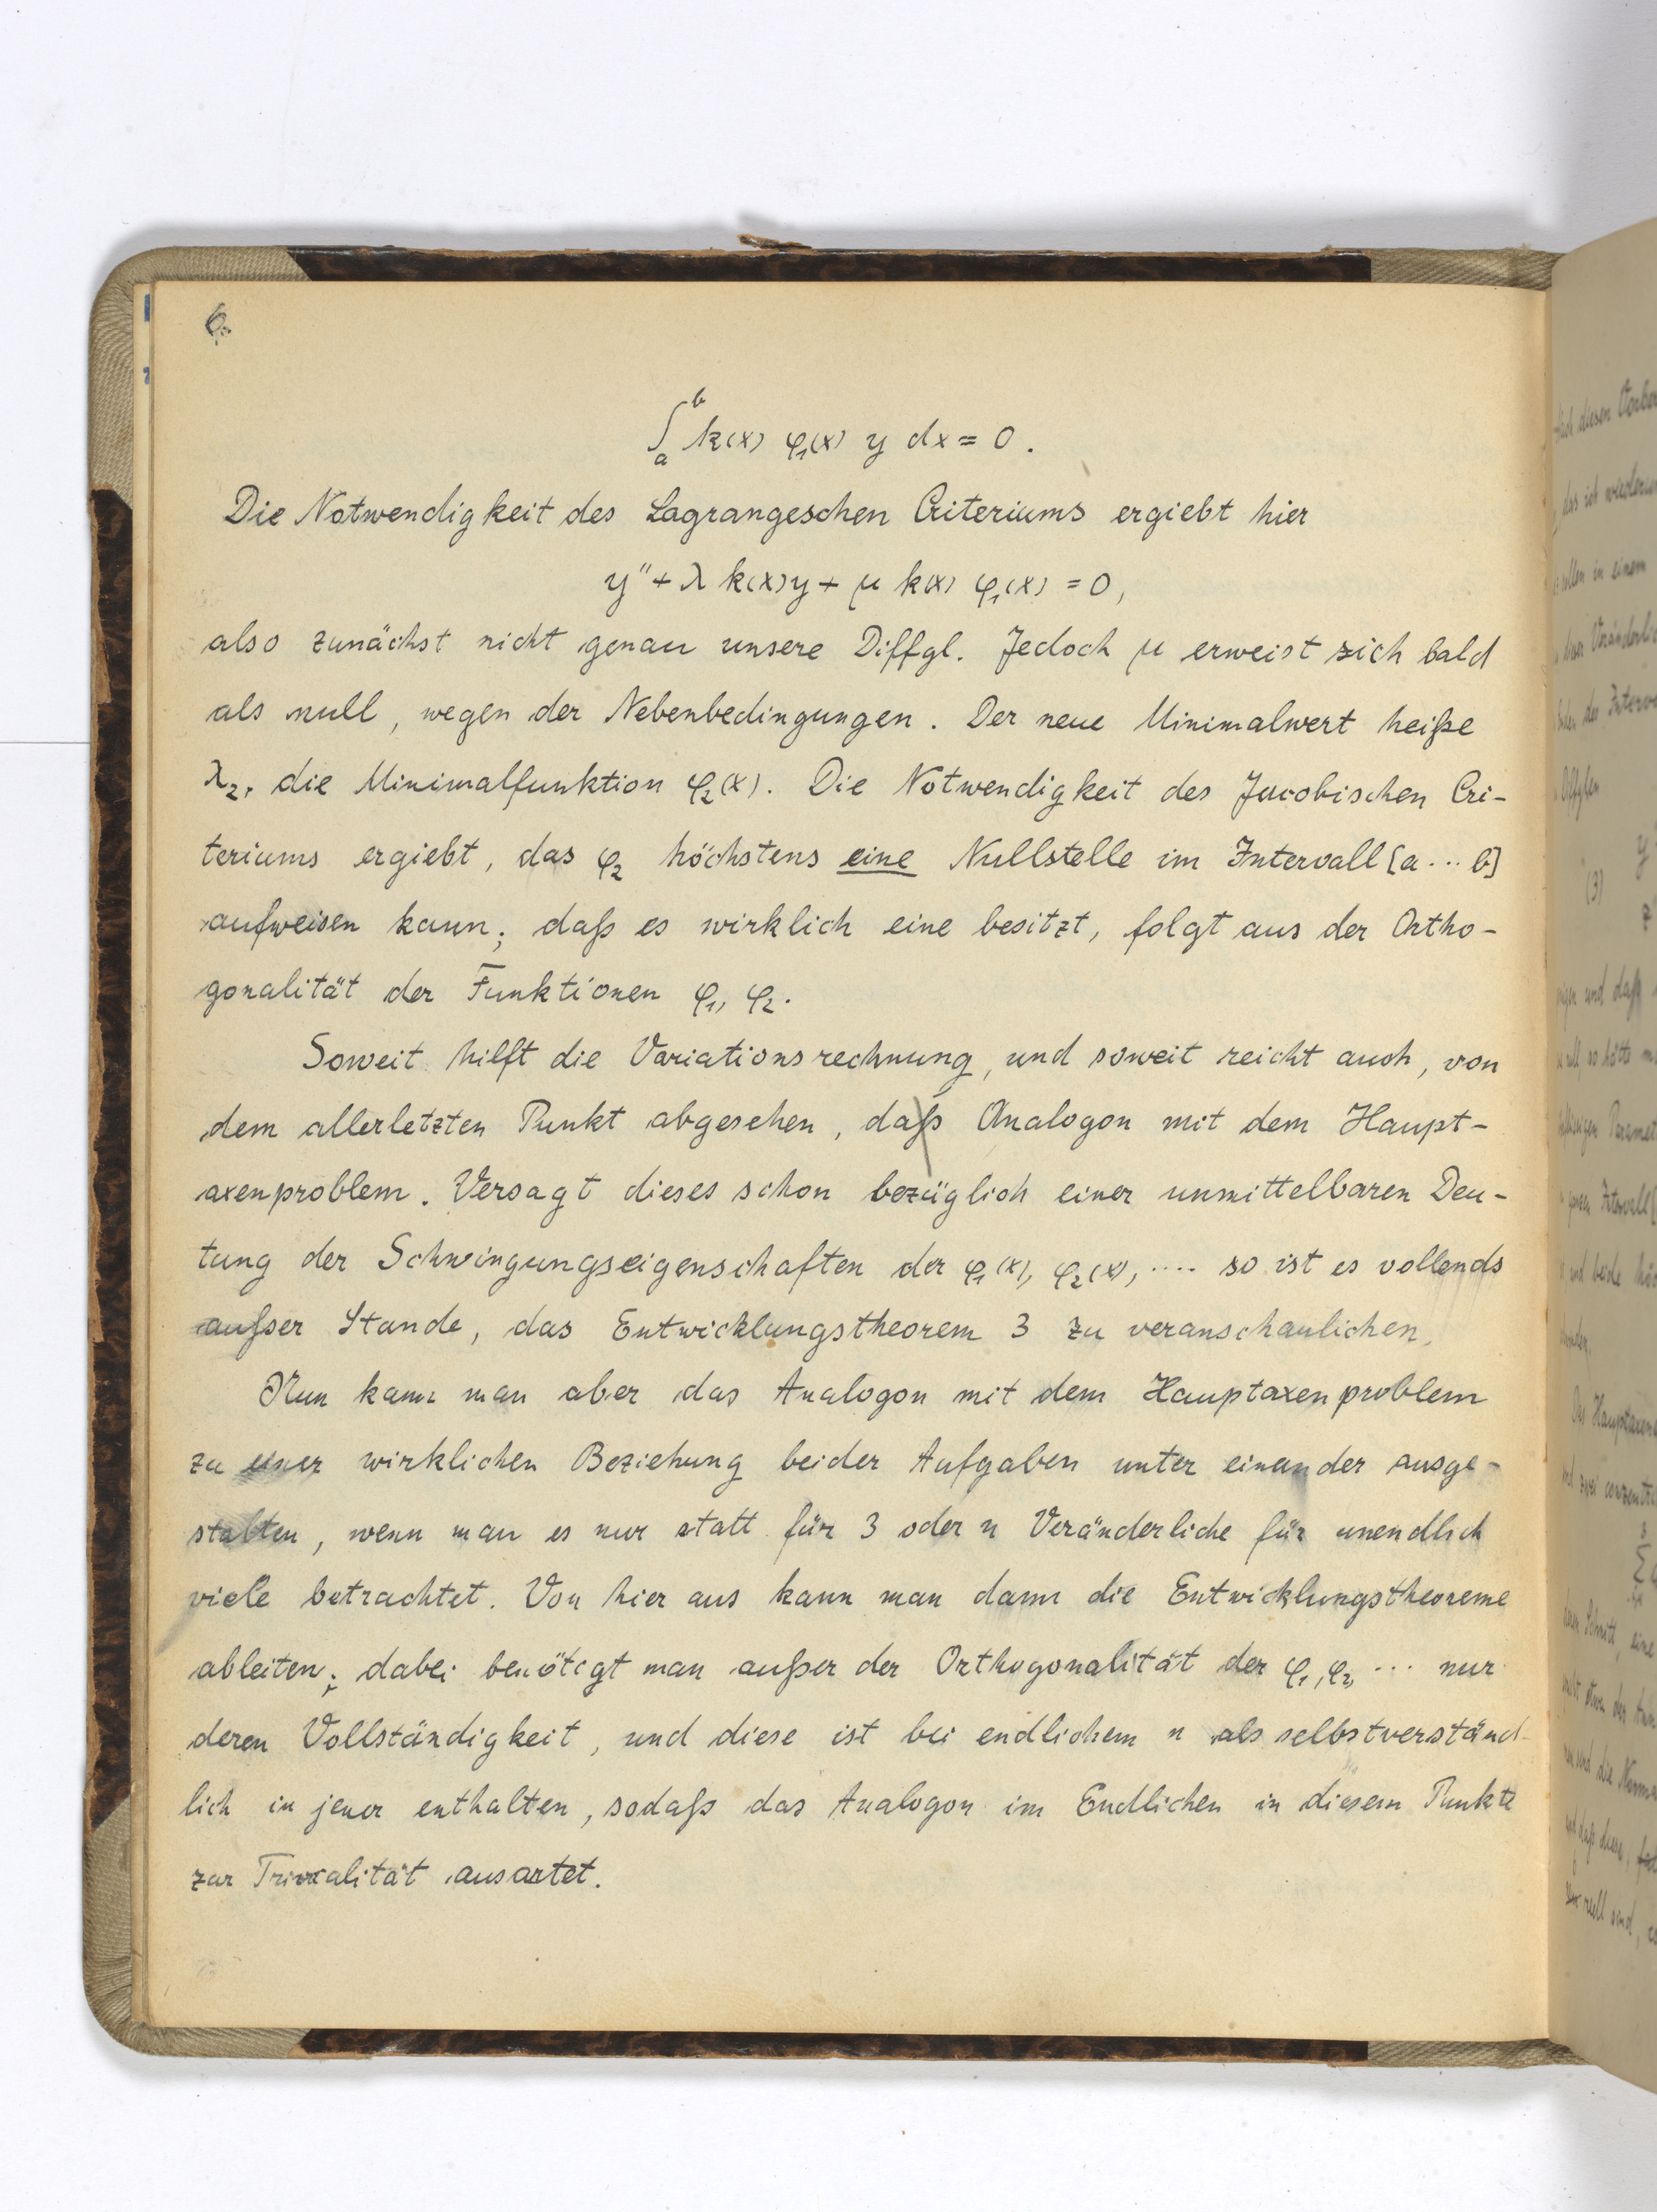 6.
∫ₐᵇ k(x) φ₁(x) y dx = 0.
Die Notwendigkeit des Lagrangeschen Criteriums ergiebt hier
y'' + λ k(x) y + μ k(x) φ₁(x) = 0,
also zunächst nicht genau unsere Diffgl. Jedoch μ erweist sich bald
als null, wegen der Nebenbedingungen. Der neue Minimalwert heiße
λ₂, die Minimalfunktion φ₂(x). Die Notwendigkeit des Jacobischen Cri-
teriums ergiebt, das φ₂ höchstens eine Nullstelle im Intervall [a ... b]
aufweisen kann; daß es wirklich eine besitzt, folgt aus der Ortho-
gonalität der Funktionen φ₁, φ₂.
Soweit hilft die Variationsrechnung, und soweit reicht auch, von
dem allerletzten Punkt abgesehen, das Analogon mit dem Haupt-
axenproblem. Versagt dieses schon bezüglich einer unmittelbaren Deu-
tung der Schwingungseigenschaften der φ₁(x), φ₂(x), .... so ist es vollends
außer Stande, das Entwicklungstheorem 3 zu veranschaulichen.
Nun kann man aber das Analogon mit dem Hauptaxenproblem
zu einer wirklichen Beziehung beider Aufgaben unter einander ausge-
stalten, wenn man es nur statt für 3 oder n Veränderliche für unendlich
viele betrachtet. Von hier aus kann man dann die Entwicklungstheoreme
ableiten; dabei benötigt man außer der Orthogonalität der φ₁, φ₂, ... nur
deren Vollständigkeit, und diese ist bei endlichem n als selbstverständ-
lich in jener enthalten, sodaß das Analogon im Endlichen in diesem Punkte
zur Trivialität ausartet.